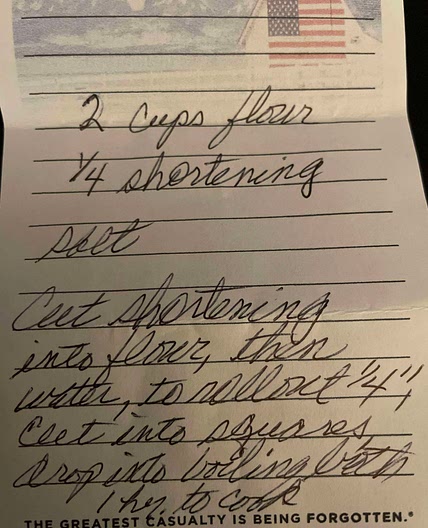 2 cups flour
1/4 shortening
salt
Cut shortening
into flour, then
water, to rollout 1/4",
Cut into squares
drop into boiling broth
1 hr. to cook
THE GREATEST CASUALTY IS BEING FORGOTTEN.®